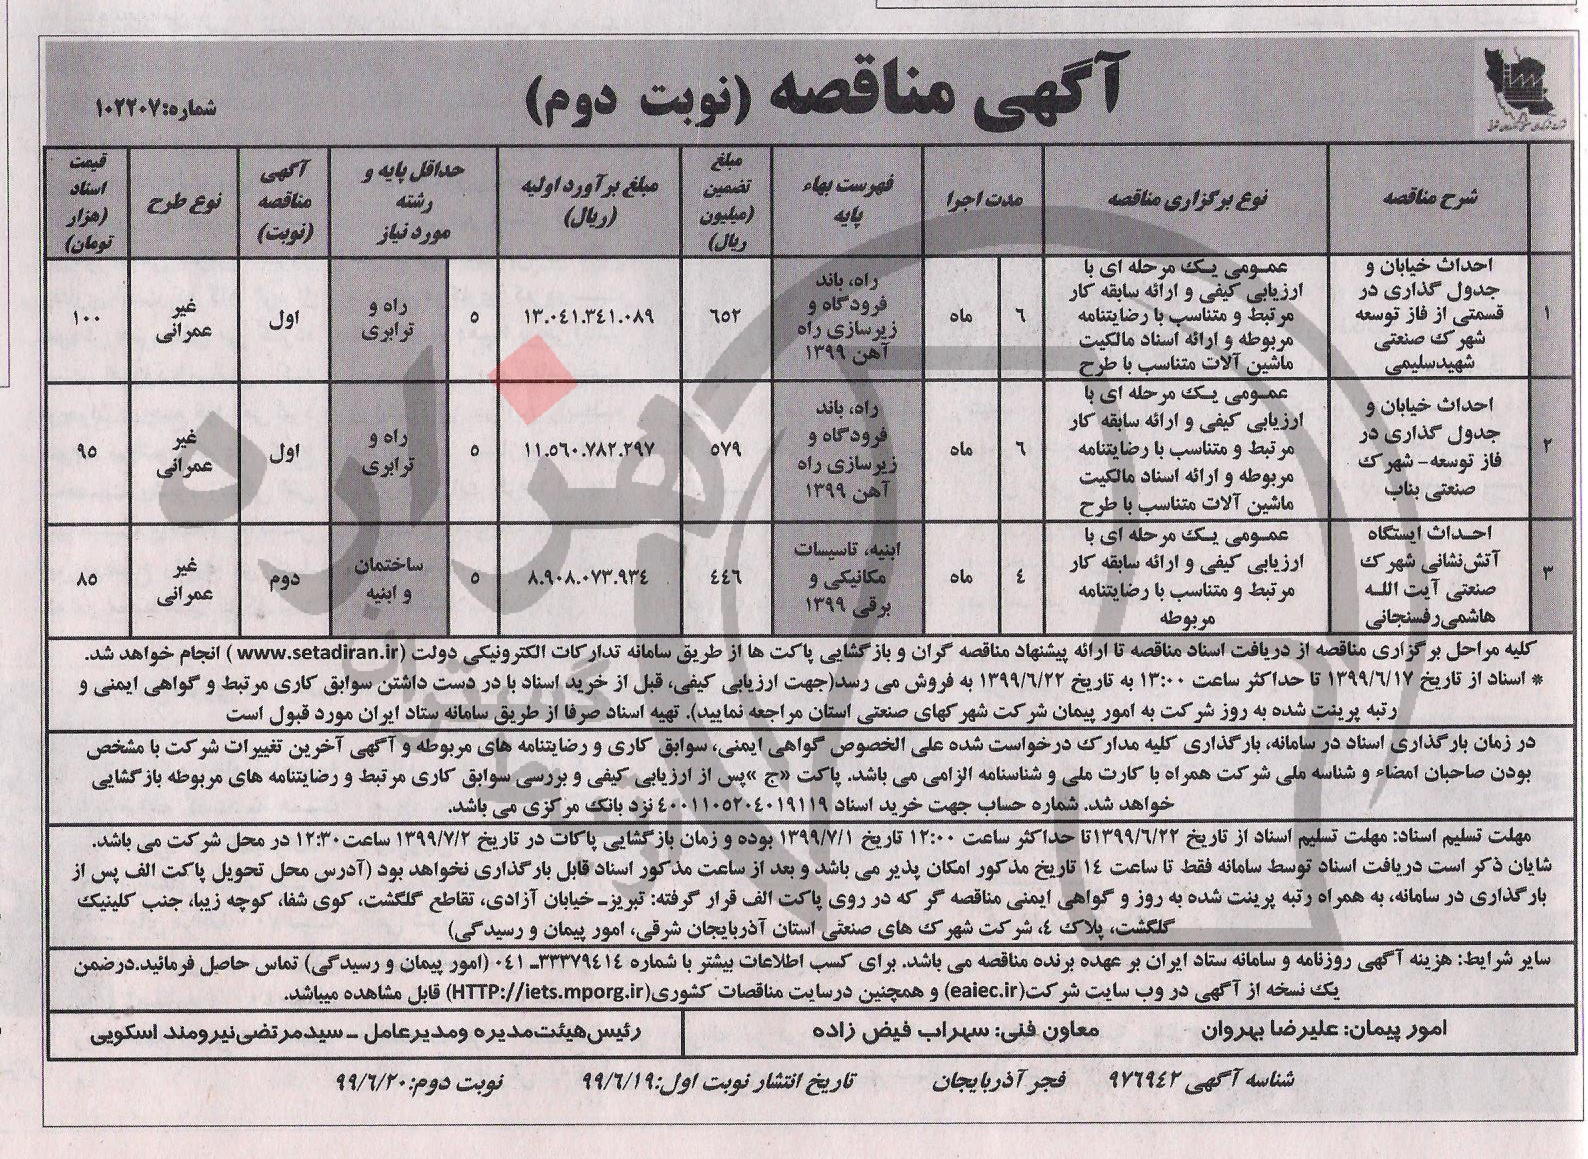 آگهی مناقصه (نوبت دوم)
شماره: ۱۰۲۲۰۷
شرح مناقصه
نوع برگزاری مناقصه
مدت اجرا
فهرست بهاء
پایه
مبلغ
تضمین
(میلیون
ریال)
مبلغ برآورد اولیه
(ریال)
حداقل پایه و
رشته
مورد نیاز
آگهی
مناقصه
(نوبت)
نوع طرح
قیمت
اسناد
(هزار
تومان)
۱
احداث خیابان و
جدول گذاری در
قسمتی از فاز توسعه
شهرک صنعتی
شهید سلیمی
عمومی یک مرحله ای با
ارزیابی کیفی و ارائه سابقه کار
مرتبط و متناسب با رضایتنامه
مربوطه و ارائه اسناد مالکیت
ماشین آلات متناسب با طرح
۶
ماه
راه، باند
فرودگاه و
زیرسازی راه
آهن ۱۳۹۹
۶۵۲
۱۳.۰۴۱.۳۴۱.۰۸۹
۵
راه و
ترابری
اول
غیر
عمرانی
۱۰۰
۲
احداث خیابان و
جدول گذاری در
فاز توسعه- شهرک
صنعتی بناب
عمومی یک مرحله ای با
ارزیابی کیفی و ارائه سابقه کار
مرتبط و متناسب با رضایتنامه
مربوطه و ارائه اسناد مالکیت
ماشین آلات متناسب با طرح
۶
ماه
راه، باند
فرودگاه و
زیرسازی راه
آهن ۱۳۹۹
۵۷۹
۱۱.۵۶۰.۷۸۲.۲۹۷
۵
راه و
ترابری
اول
غیر
عمرانی
۹۵
۳
احداث ایستگاه
آتش‌نشانی شهرک
صنعتی آیت الله
هاشمی رفسنجانی
عمومی یک مرحله ای با
ارزیابی کیفی و ارائه سابقه کار
مرتبط و متناسب با رضایتنامه
مربوطه
۴
ماه
ابنیه، تاسیسات
مکانیکی و
برقی ۱۳۹۹
۴۴۶
۸.۹۰۸.۰۷۳.۹۳۴
۵
ساختمان
و ابنیه
دوم
غیر
عمرانی
۸۵
کلیه مراحل برگزاری مناقصه از دریافت اسناد مناقصه تا ارائه پیشنهاد مناقصه گران و بازگشایی پاکت ها از طریق سامانه تدارکات الکترونیکی دولت (www.setadiran.ir) انجام خواهد شد.
* اسناد از تاریخ ۱۳۹۹/۶/۱۷ تا حداکثر ساعت ۱۳:۰۰ به تاریخ ۱۳۹۹/۶/۲۲ به فروش می رسد(جهت ارزیابی کیفی، قبل از خرید اسناد با در دست داشتن سوابق کاری مرتبط و گواهی ایمنی و
رتبه پرینت شده به روز شرکت به امور پیمان شرکت شهرکهای صنعتی استان مراجعه نمایید). تهیه اسناد صرفا از طریق سامانه ستاد ایران مورد قبول است
در زمان بارگذاری اسناد در سامانه، بارگذاری کلیه مدارک درخواست شده علی الخصوص گواهی ایمنی، سوابق کاری و رضایتنامه های مربوطه و آگهی آخرین تغییرات شرکت با مشخص
بودن صاحبان امضاء و شناسه ملی شرکت همراه با کارت ملی و شناسنامه الزامی می باشد. پاکت «ج» پس از ارزیابی کیفی و بررسی سوابق کاری مرتبط و رضایتنامه های مربوطه بازگشایی
خواهد شد. شماره حساب جهت خرید اسناد ۴۰۰۱۱۰۵۲۰۴۰۱۹۱۱۹ نزد بانک مرکزی می باشد.
مهلت تسلیم اسناد: مهلت تسلیم اسناد از تاریخ ۱۳۹۹/۶/۲۲تا حداکثر ساعت ۱۲:۰۰ تاریخ ۱۳۹۹/۷/۱ بوده و زمان بازگشایی پاکات در تاریخ ۱۳۹۹/۷/۲ ساعت۱۲:۳۰ در محل شرکت می باشد.
شایان ذکر است دریافت اسناد توسط سامانه فقط تا ساعت ۱۴ تاریخ مذکور امکان پذیر می باشد و بعد از ساعت مذکور اسناد قابل بارگذاری نخواهد بود (آدرس محل تحویل پاکت الف پس از
بارگذاری در سامانه، به همراه رتبه پرینت شده به روز و گواهی ایمنی مناقصه گر که در روی پاکت الف قرار گرفته: تبریز_ خیابان آزادی، تقاطع گلگشت، کوی شفا، کوچه زیبا، جنب کلینیک
گلگشت، پلاک ۴، شرکت شهرک های صنعتی استان آذربایجان شرقی، امور پیمان و رسیدگی)
سایر شرایط: هزینه آگهی روزنامه و سامانه ستاد ایران بر عهده برنده مناقصه می باشد. برای کسب اطلاعات بیشتر با شماره ۳۳۳۷۹۴۱۴_۰۴۱ (امور پیمان و رسیدگی) تماس حاصل فرمائید.درضمن
یک نسخه از آگهی در وب سایت شرکت(eaiec.ir) و همچنین درسایت مناقصات کشوری(HTTP://iets.mporg.ir) قابل مشاهده میباشد.
امور پیمان: علیرضا بهروان
معاون فنی: سهراب فیض زاده
رئیس هیئت مدیره و مدیرعامل _ سید مرتضی نیرومند اسکویی
شناسه آگهی ۹۷۶۹۴۲
فجر آذربایجان
تاریخ انتشار نوبت اول: ۹۹/۶/۱۹
نوبت دوم: ۹۹/۶/۲۰
هزاره